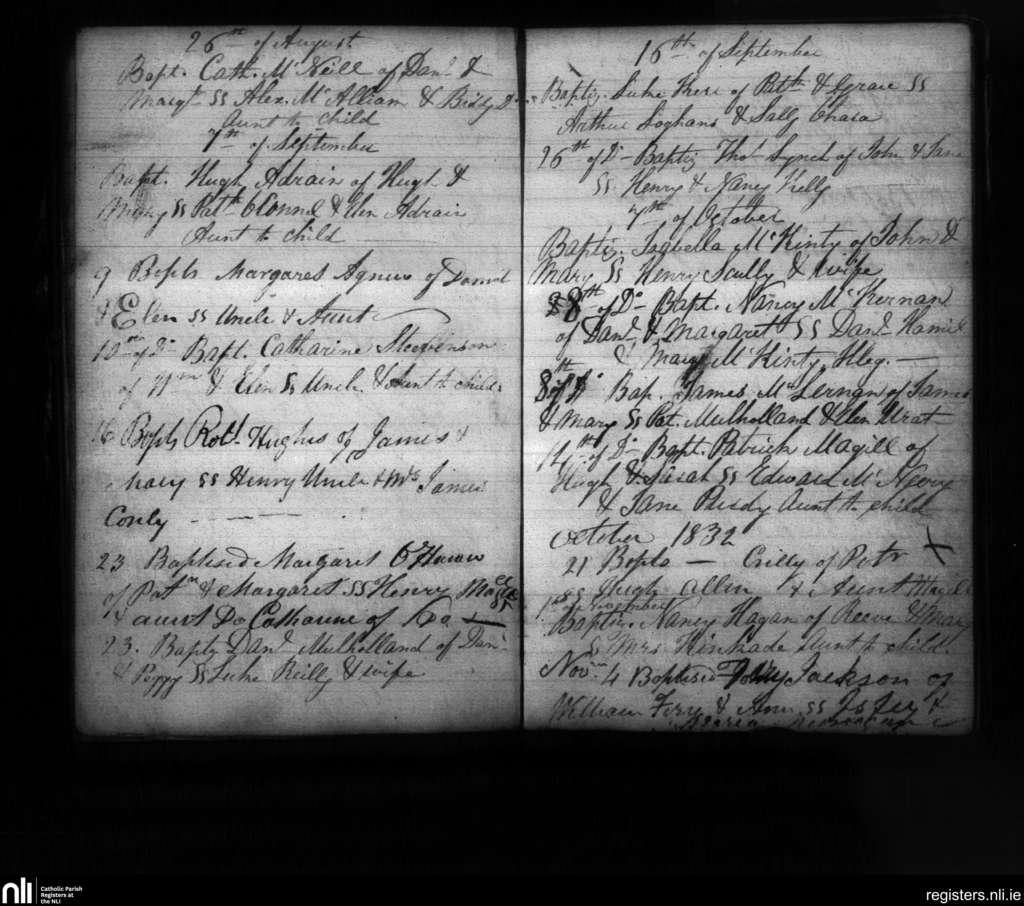 26th of August
Bapt. Cath. McNeill of Danl &
Margt SS Alex. McAlliam & Biddy Do
Aunt to child
7th of September
Bapt. Hugh Adrain of Hugh &
Mary SS Patk O Connel & Elen Adrain
Aunt to child
9 Bapts Margaret Agnew of Daniel
& Elen SS Uncle & Aunt
10th of Do Bapt. Catharine Steephenson
of Wm & Elen SS Uncle & Aunt to child
16 Bapts Robt Hughes of James &
Mary SS Henry Uncle & Mrs James
Conly
23 Baptised Margaret O'Haran
of Patk & Margaret SS Henry
& aunt Do Catharine of Do
23. Bapty Danl Mulholland of Danl
& Peggy SS Luke Reilly & wife
16th of September
Baptiz. Luke of Patk & Grace SS
Arthur Loghans & Sally Ohara
26th of Do Baptiz Thos Lynch of John & Jane
SS Henry & Nancy Kelly
7th of October
Baptiz. Isabella McKinty of John &
Mary SS Henry Scully & wife
8th of Do Bapt. Nancy McKernan
of Danl & Margaret SS Danl Hamil
& Margt McKinty Illeg.
8th of Do Bap. James McLernan of James
& Mary SS Pat. Mulholland & Elen
14th of Do Bapt. Patrick Magill of
Hugh & Sarah SS Edward McNeory
& Jane Purdy Aunt to child
October 1832
21 Bapts — Crilly of Petr
SS Hugh Allen & Aunt
1st of November
Baptiz. Nancy Hagan of Reeve & Mary
S Mrs Kinkade Aunt to child.
Novr 4 Baptised Jackson of
William Fery & Ann SS &
nli
Catholic Parish
Registers at
the NLI
registers.nli.ie